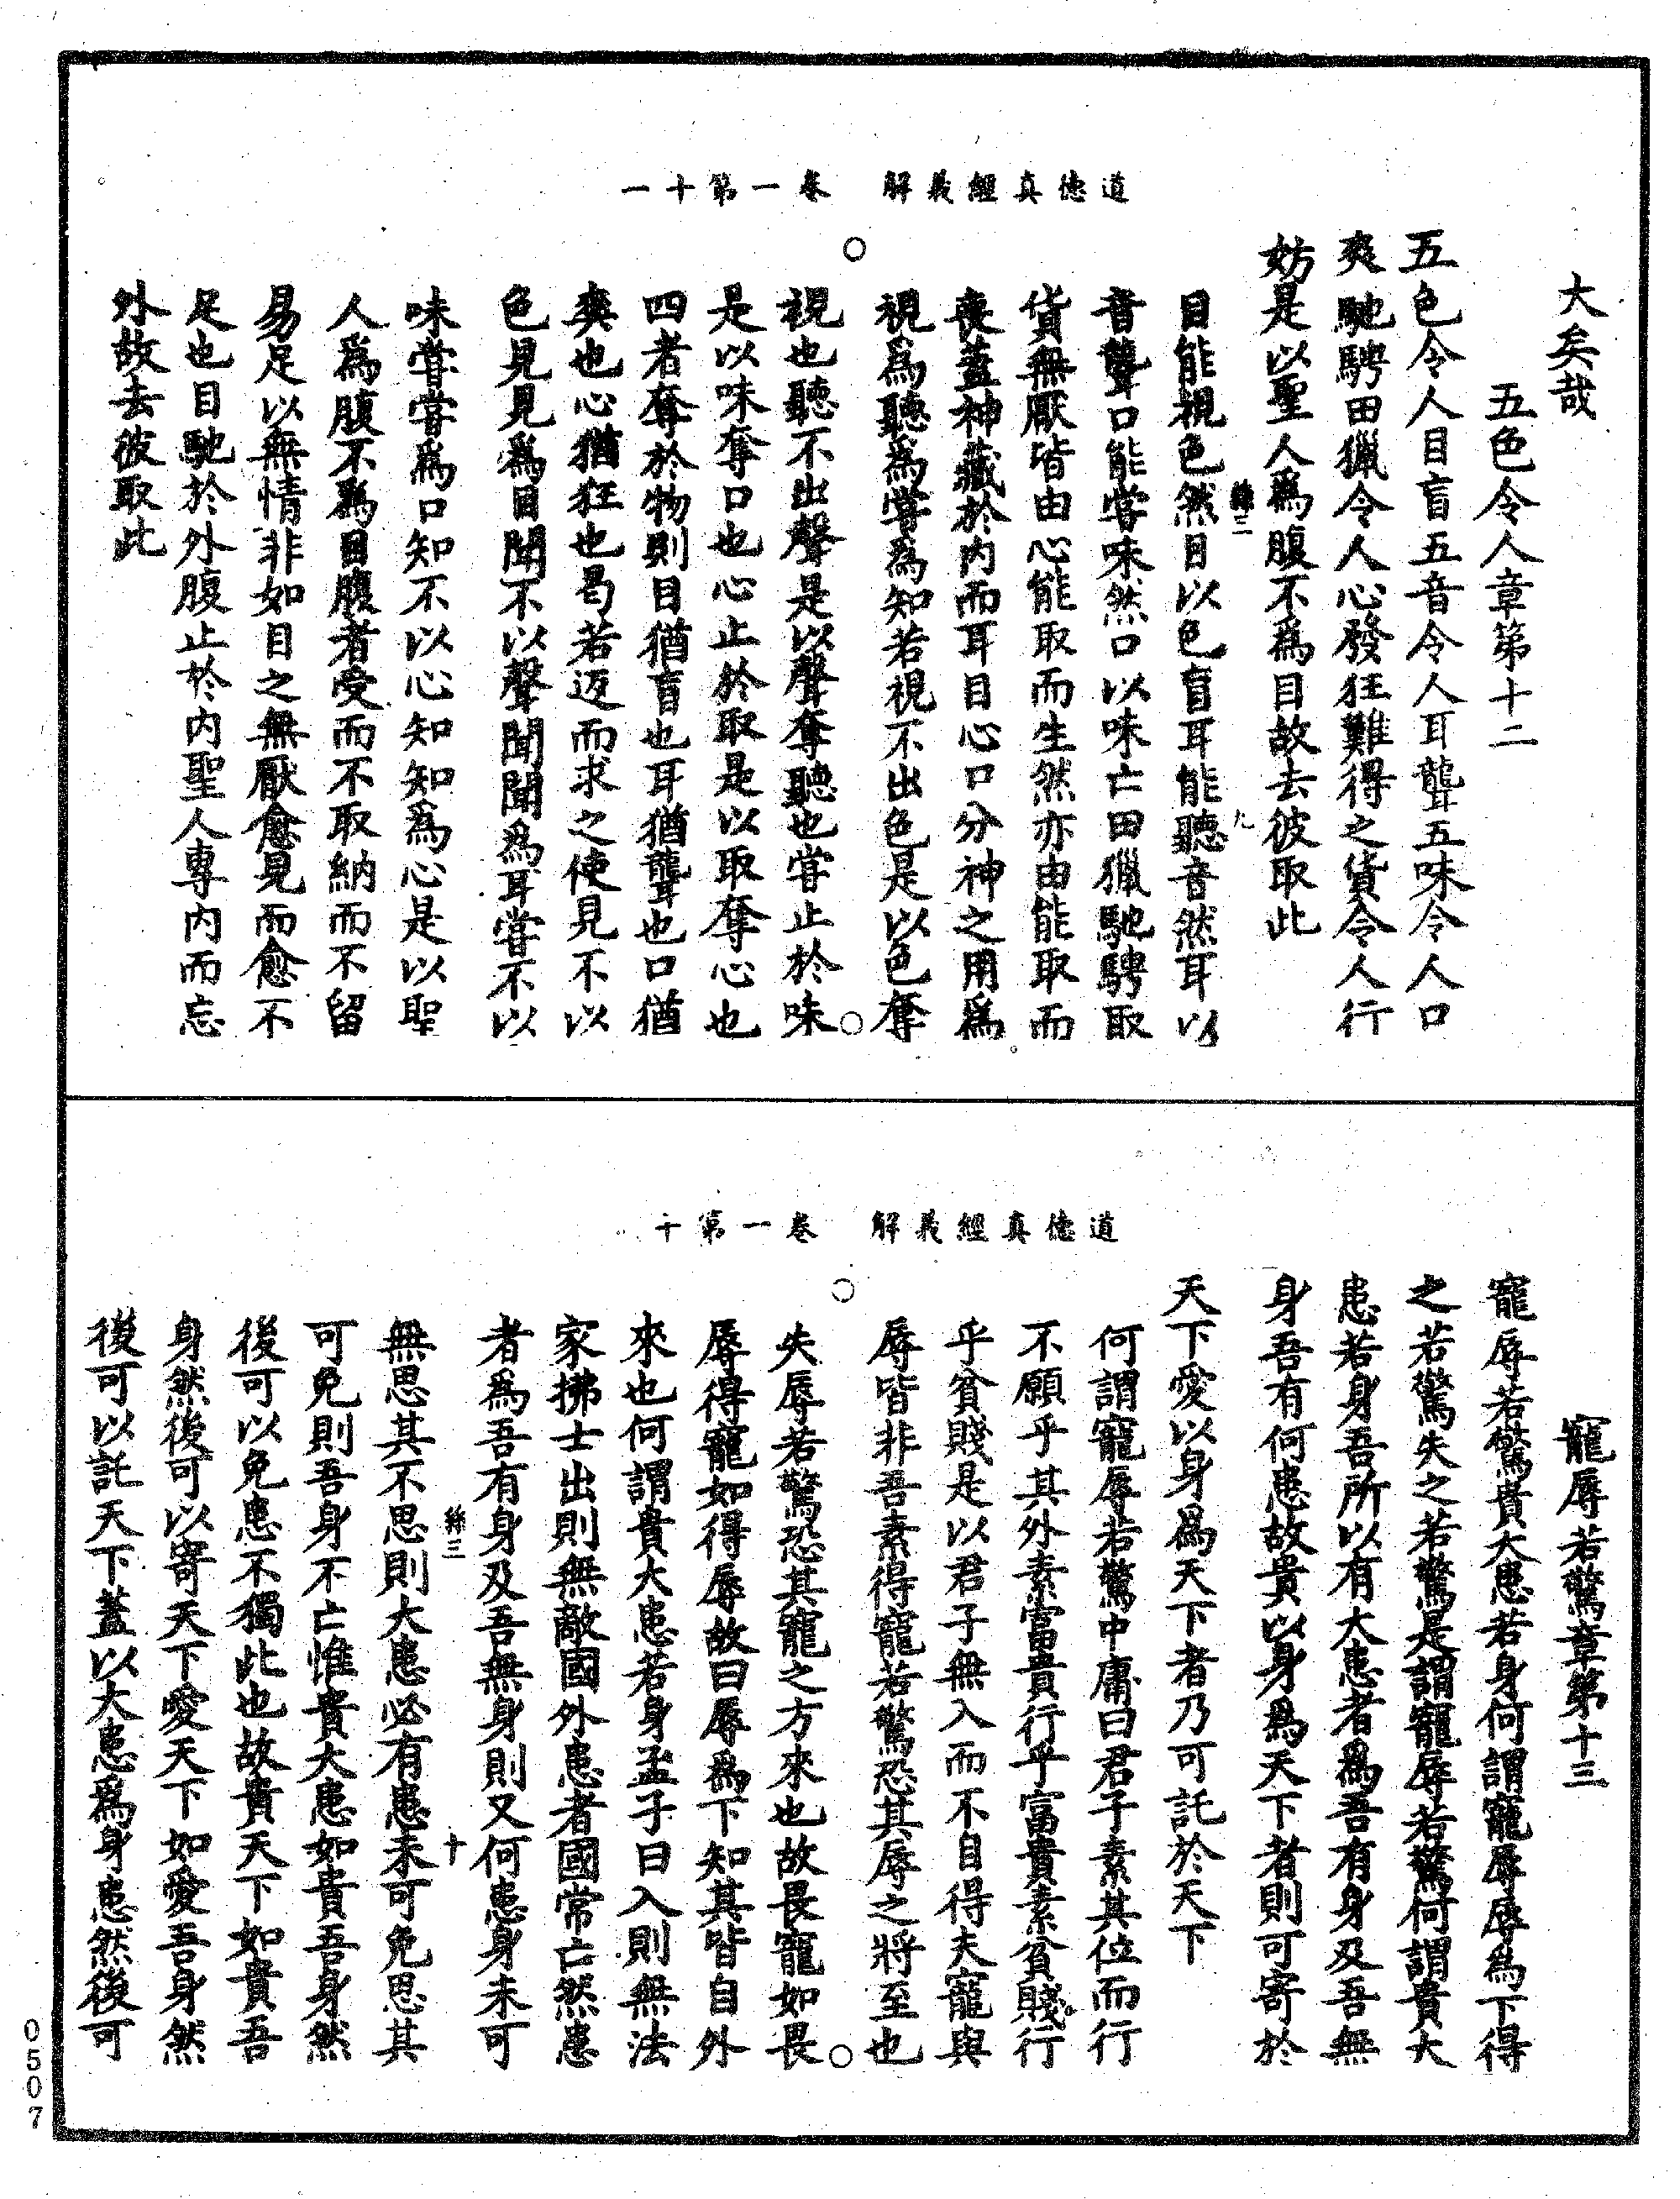 道德真經義解　卷一第十一
大矣哉
五色令人章第十二
五色令人目盲五音令人耳聾五味令人口
爽馳騁田獵令人心發狂難得之貨令人行
妨是以聖人爲腹不爲目故去彼取此
目能視色然目以色盲耳能聽音然耳以
音聾口能嘗味然口以味亡田獵馳騁取
貨無厭皆由心能取而生然亦由能取而
喪蓋神藏於內而耳目心口分神之用爲
視爲聽爲嘗爲知若視不出色是以色奪
視也聽不出聲是以聲奪聽也嘗止於味
是以味奪口也心止於取是以取奪心也
四者奪於物則目猶盲也耳猶聾也口猶
爽也心猶狂也曷若返而求之使見不以
色見見爲目聞不以聲聞聞爲耳嘗不以
味嘗嘗爲口知不以心知知爲心是以聖
人爲腹不爲目腹者受而不取納而不留
易足以無情非如目之無厭愈見而愈不
足也目馳於外腹止於內聖人專內而忘
外故去彼取此
絲三
九
道德真經義解　卷一第十
寵辱若驚章第十三
寵辱若驚貴大患若身何謂寵辱辱爲下得
之若驚失之若驚是謂寵辱若驚何謂貴大
患若身吾所以有大患者爲吾有身及吾無
身吾有何患故貴以身爲天下者則可寄於
天下愛以身爲天下者乃可託於天下
何謂寵辱若驚中庸曰君子素其位而行
不願乎其外素富貴行乎富貴素貧賤行
乎貧賤是以君子無入而不自得夫寵與
辱皆非吾素得寵若驚恐其辱之將至也
失辱若驚恐其寵之方來也故畏寵如畏
辱得寵如得辱故曰辱爲下知其皆自外
來也何謂貴大患若身孟子曰入則無法
家拂士出則無敵國外患者國常亡然患
者爲吾有身及吾無身則又何患身未可
無思其不思則大患必有患未可免思其
可免則吾身不亡惟貴大患如貴吾身然
後可以免患不獨此也故貴天下如貴吾
身然後可以寄天下愛天下如愛吾身然
後可以託天下蓋以大患爲身患然後可
絲三
十
0507